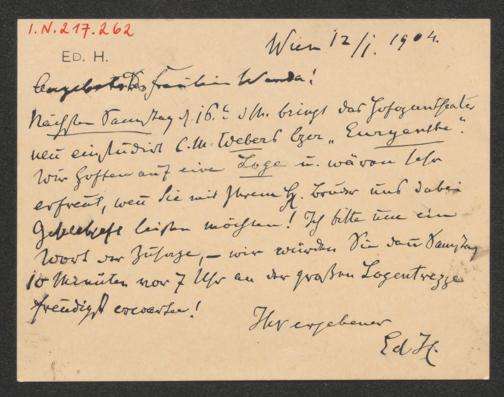 I.N. 217.262
ED. H.
Wien 12/I. 1904.
Angebetetes Fräulein Wanda!
Nächsten Samstag d. 16. d. M. bringt das Hofoperntheater
neu einstudirt C. M. Webers Oper „Euryanthe“.
Wir hoffen auf eine Loge u. wären sehr
erfreut, wenn Sie mit Ihrem H. Bruder uns dabei
Gesellschaft leisten möchten! Ich bitte um ein
Wort der Zusage, – wir würden Sie dann Samstag
10 Minuten vor 7 Uhr an der großen Logentreppe
freudigst erwarten!
Ihr ergebener
Ed H.